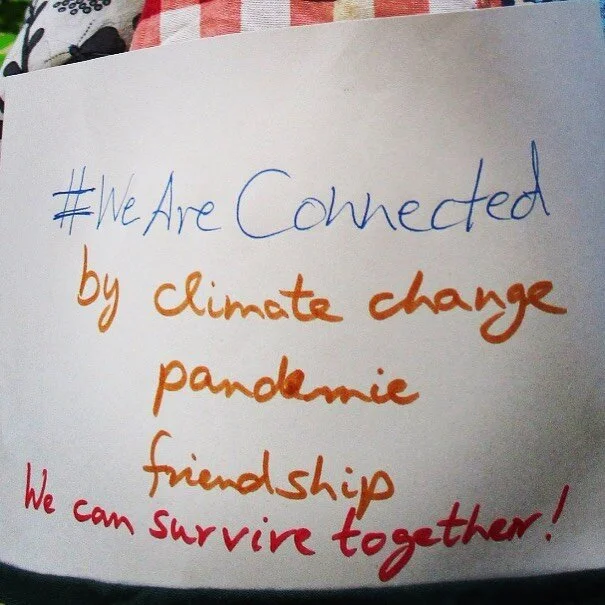 #WeAre Connected
by climate change
pandemic
friendship
We can survive together!